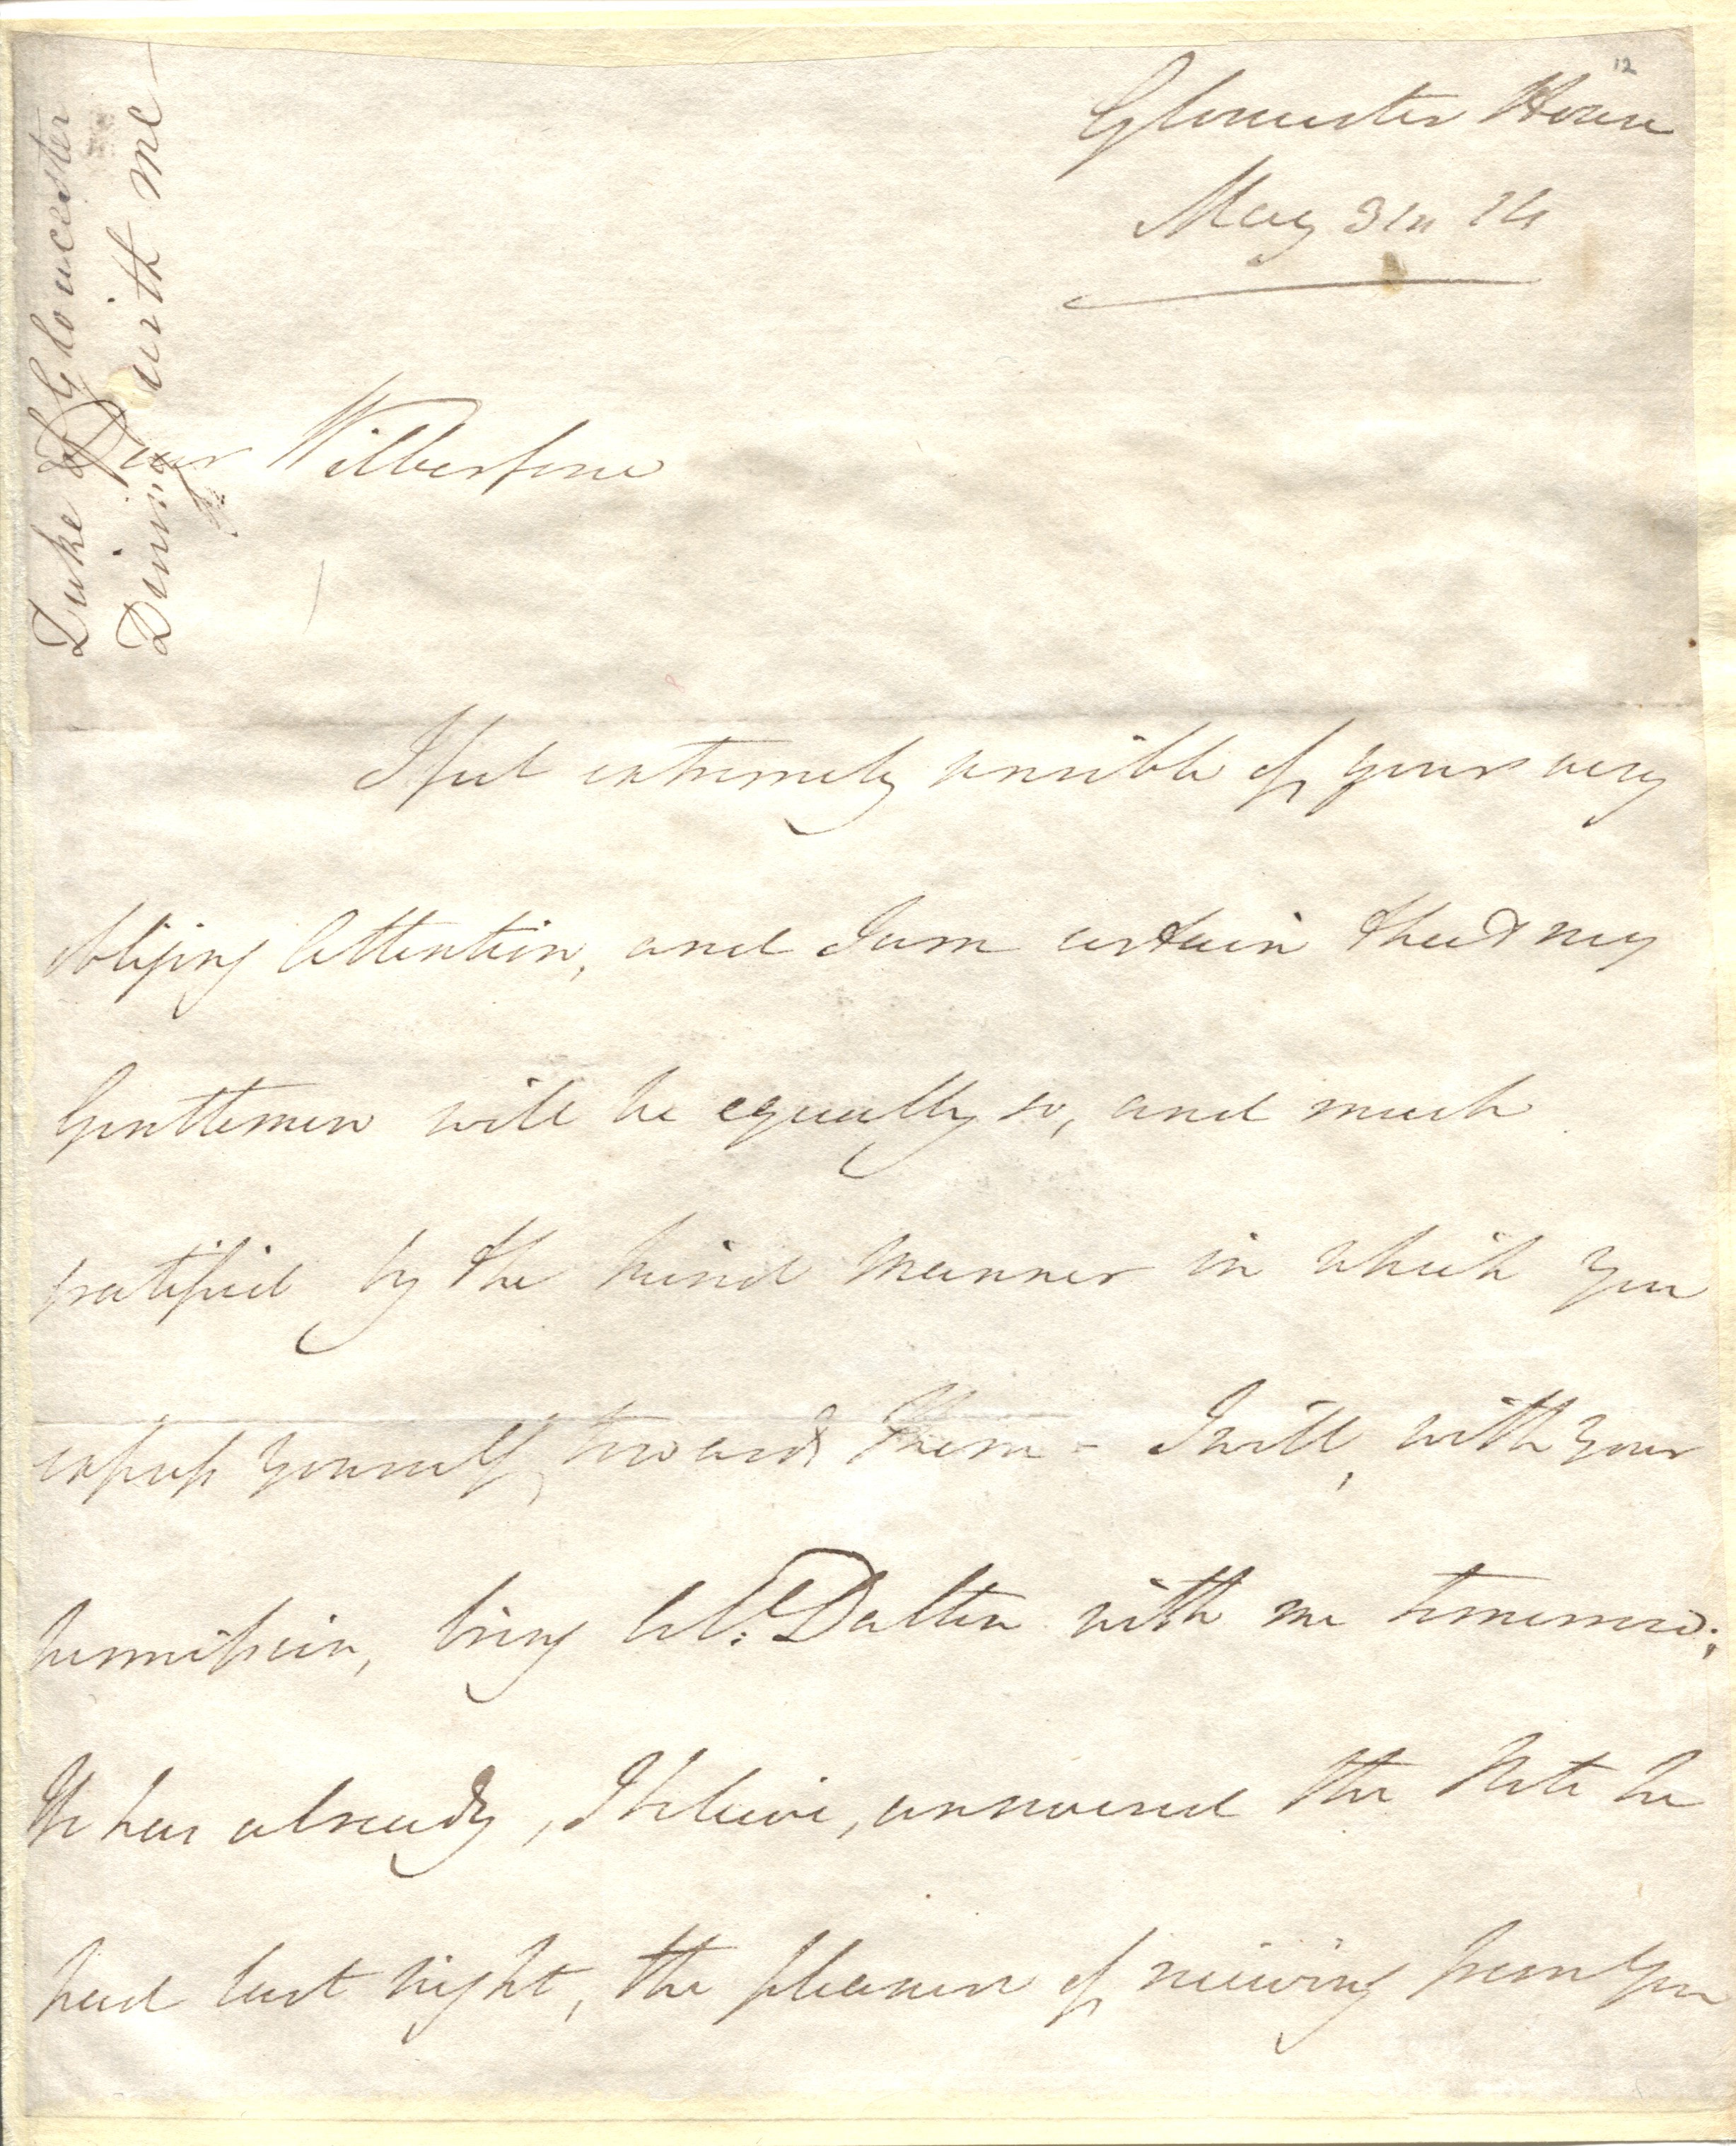 12
Gloucester House
May 3rd 14
Duke of Gloucester
Dining with me
Dear Wilberforce
I feel extremely sensible of your very
obliging Attention, and I am certain that my
Gentlemen will be equally so, and much
gratified by the kind Manner in which you
express yourself towards them - I will, with your
permission, bring Col: Dalton with me tomorrow;
He has already, I believe, answered the Note he
had last Night, the pleasure of receiving from you